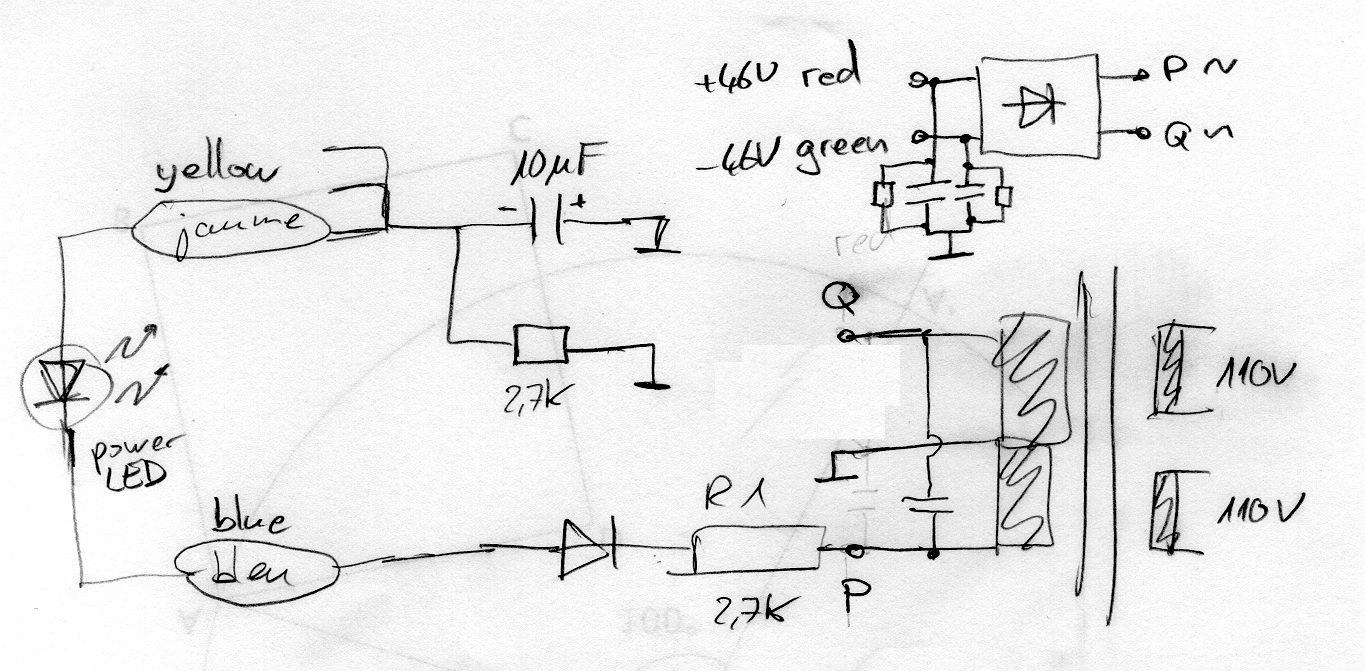 +46V red
P ~
-46V green
Q ~
yellow
jaune
10µF
- +
red
Q
2,7K
110V
power
LED
R1
110V
blue
bleu
2,7K
P
100.